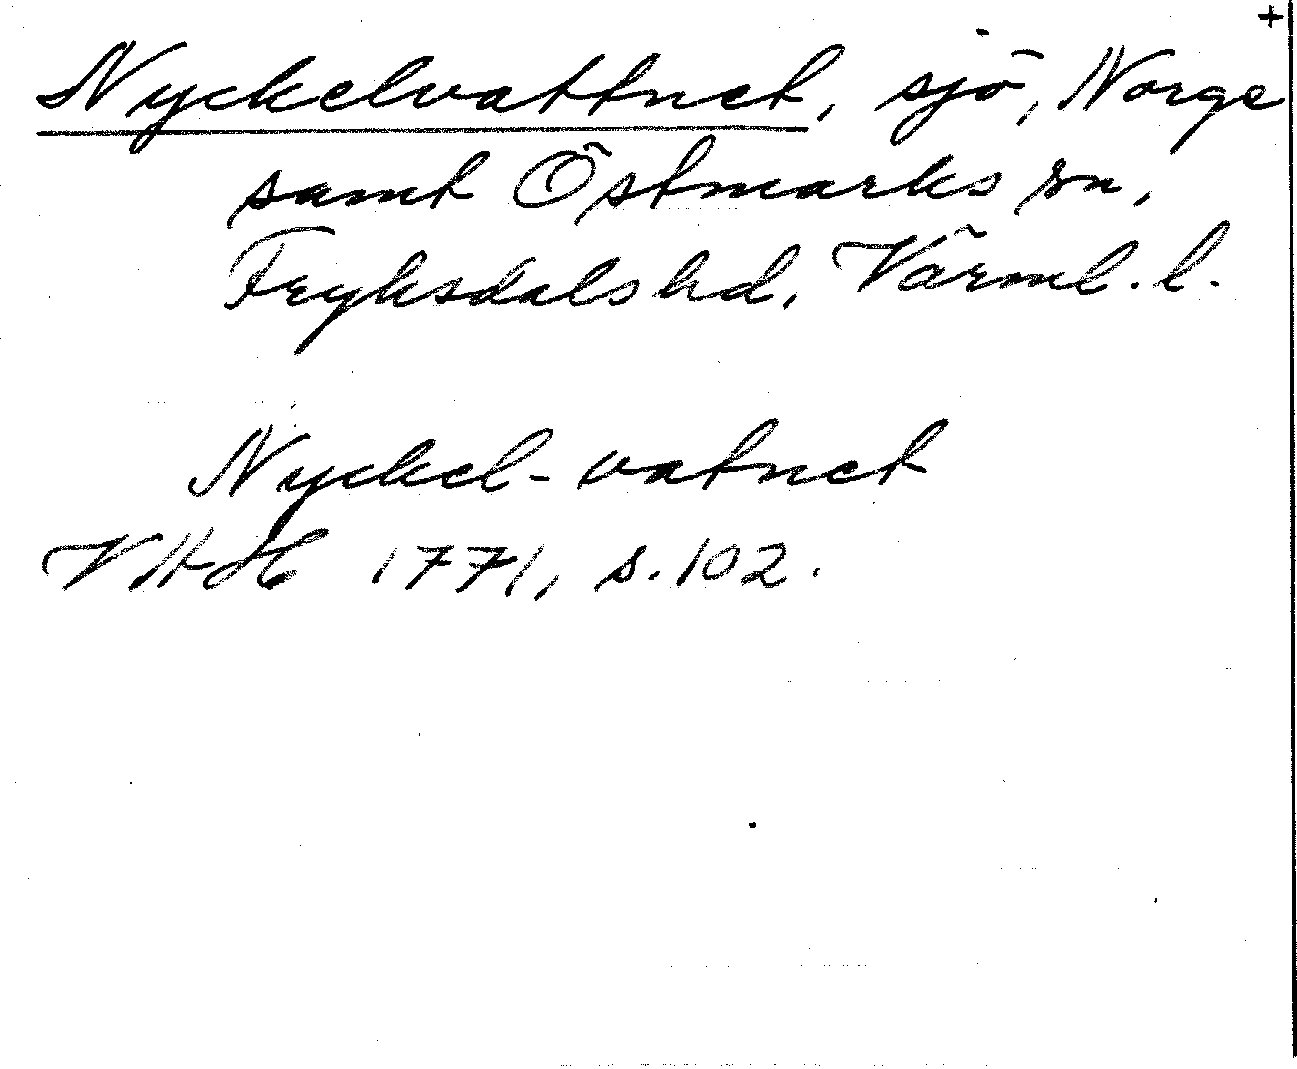 +
Nyckelvattnet, sjö, Norge
samt Östmarks sn,
Fryksdals hd, Värml. l.
Nyckel-vatnet
VAH 1771, s. 102.